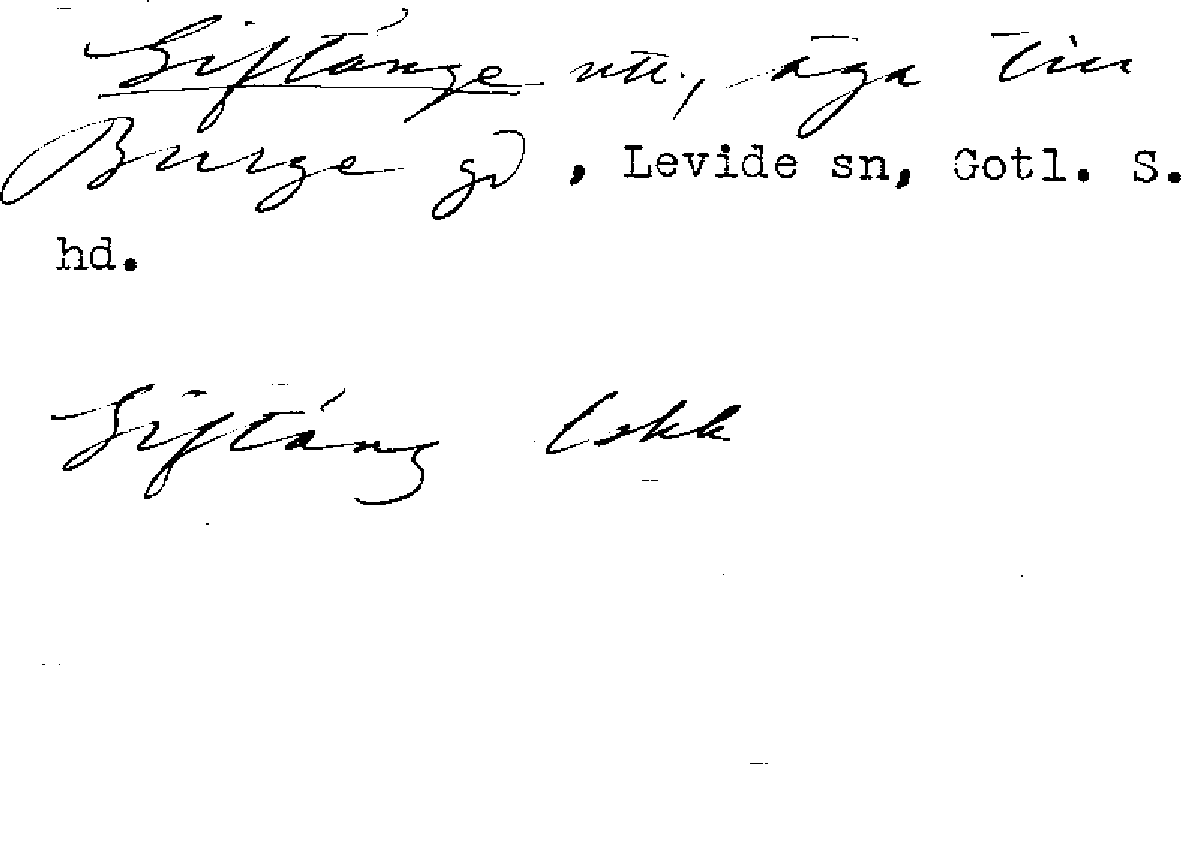 Siftänge ntr., äga till
Burge gd, Levide sn, Gotl. S.
hd.
Siftäng Lskk